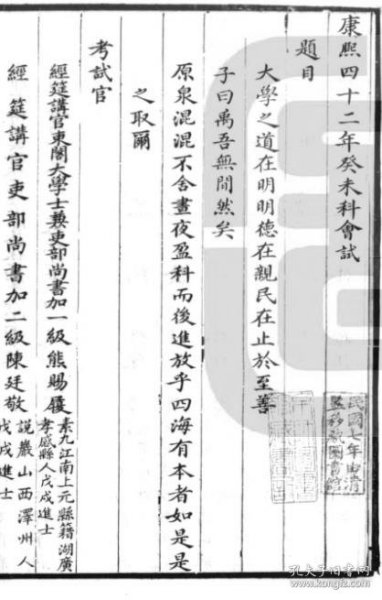 康熙四十二年癸未科會試
題目
大學之道在明明德在親民在止於至善
子曰禹吾無間然矣
原泉混混不舍晝夜盈科而後進放乎四海有本者如是是
之取爾
考試官
經筵講官東閣大學士兼吏部尚書加一級熊賜履
素九江南上元縣籍湖廣
孝感縣人戊戌進士
經筵講官吏部尚書加二級陳廷敬
說巖山西澤州人
戊戌進士
民國七年
圖書館
孔夫子旧书网